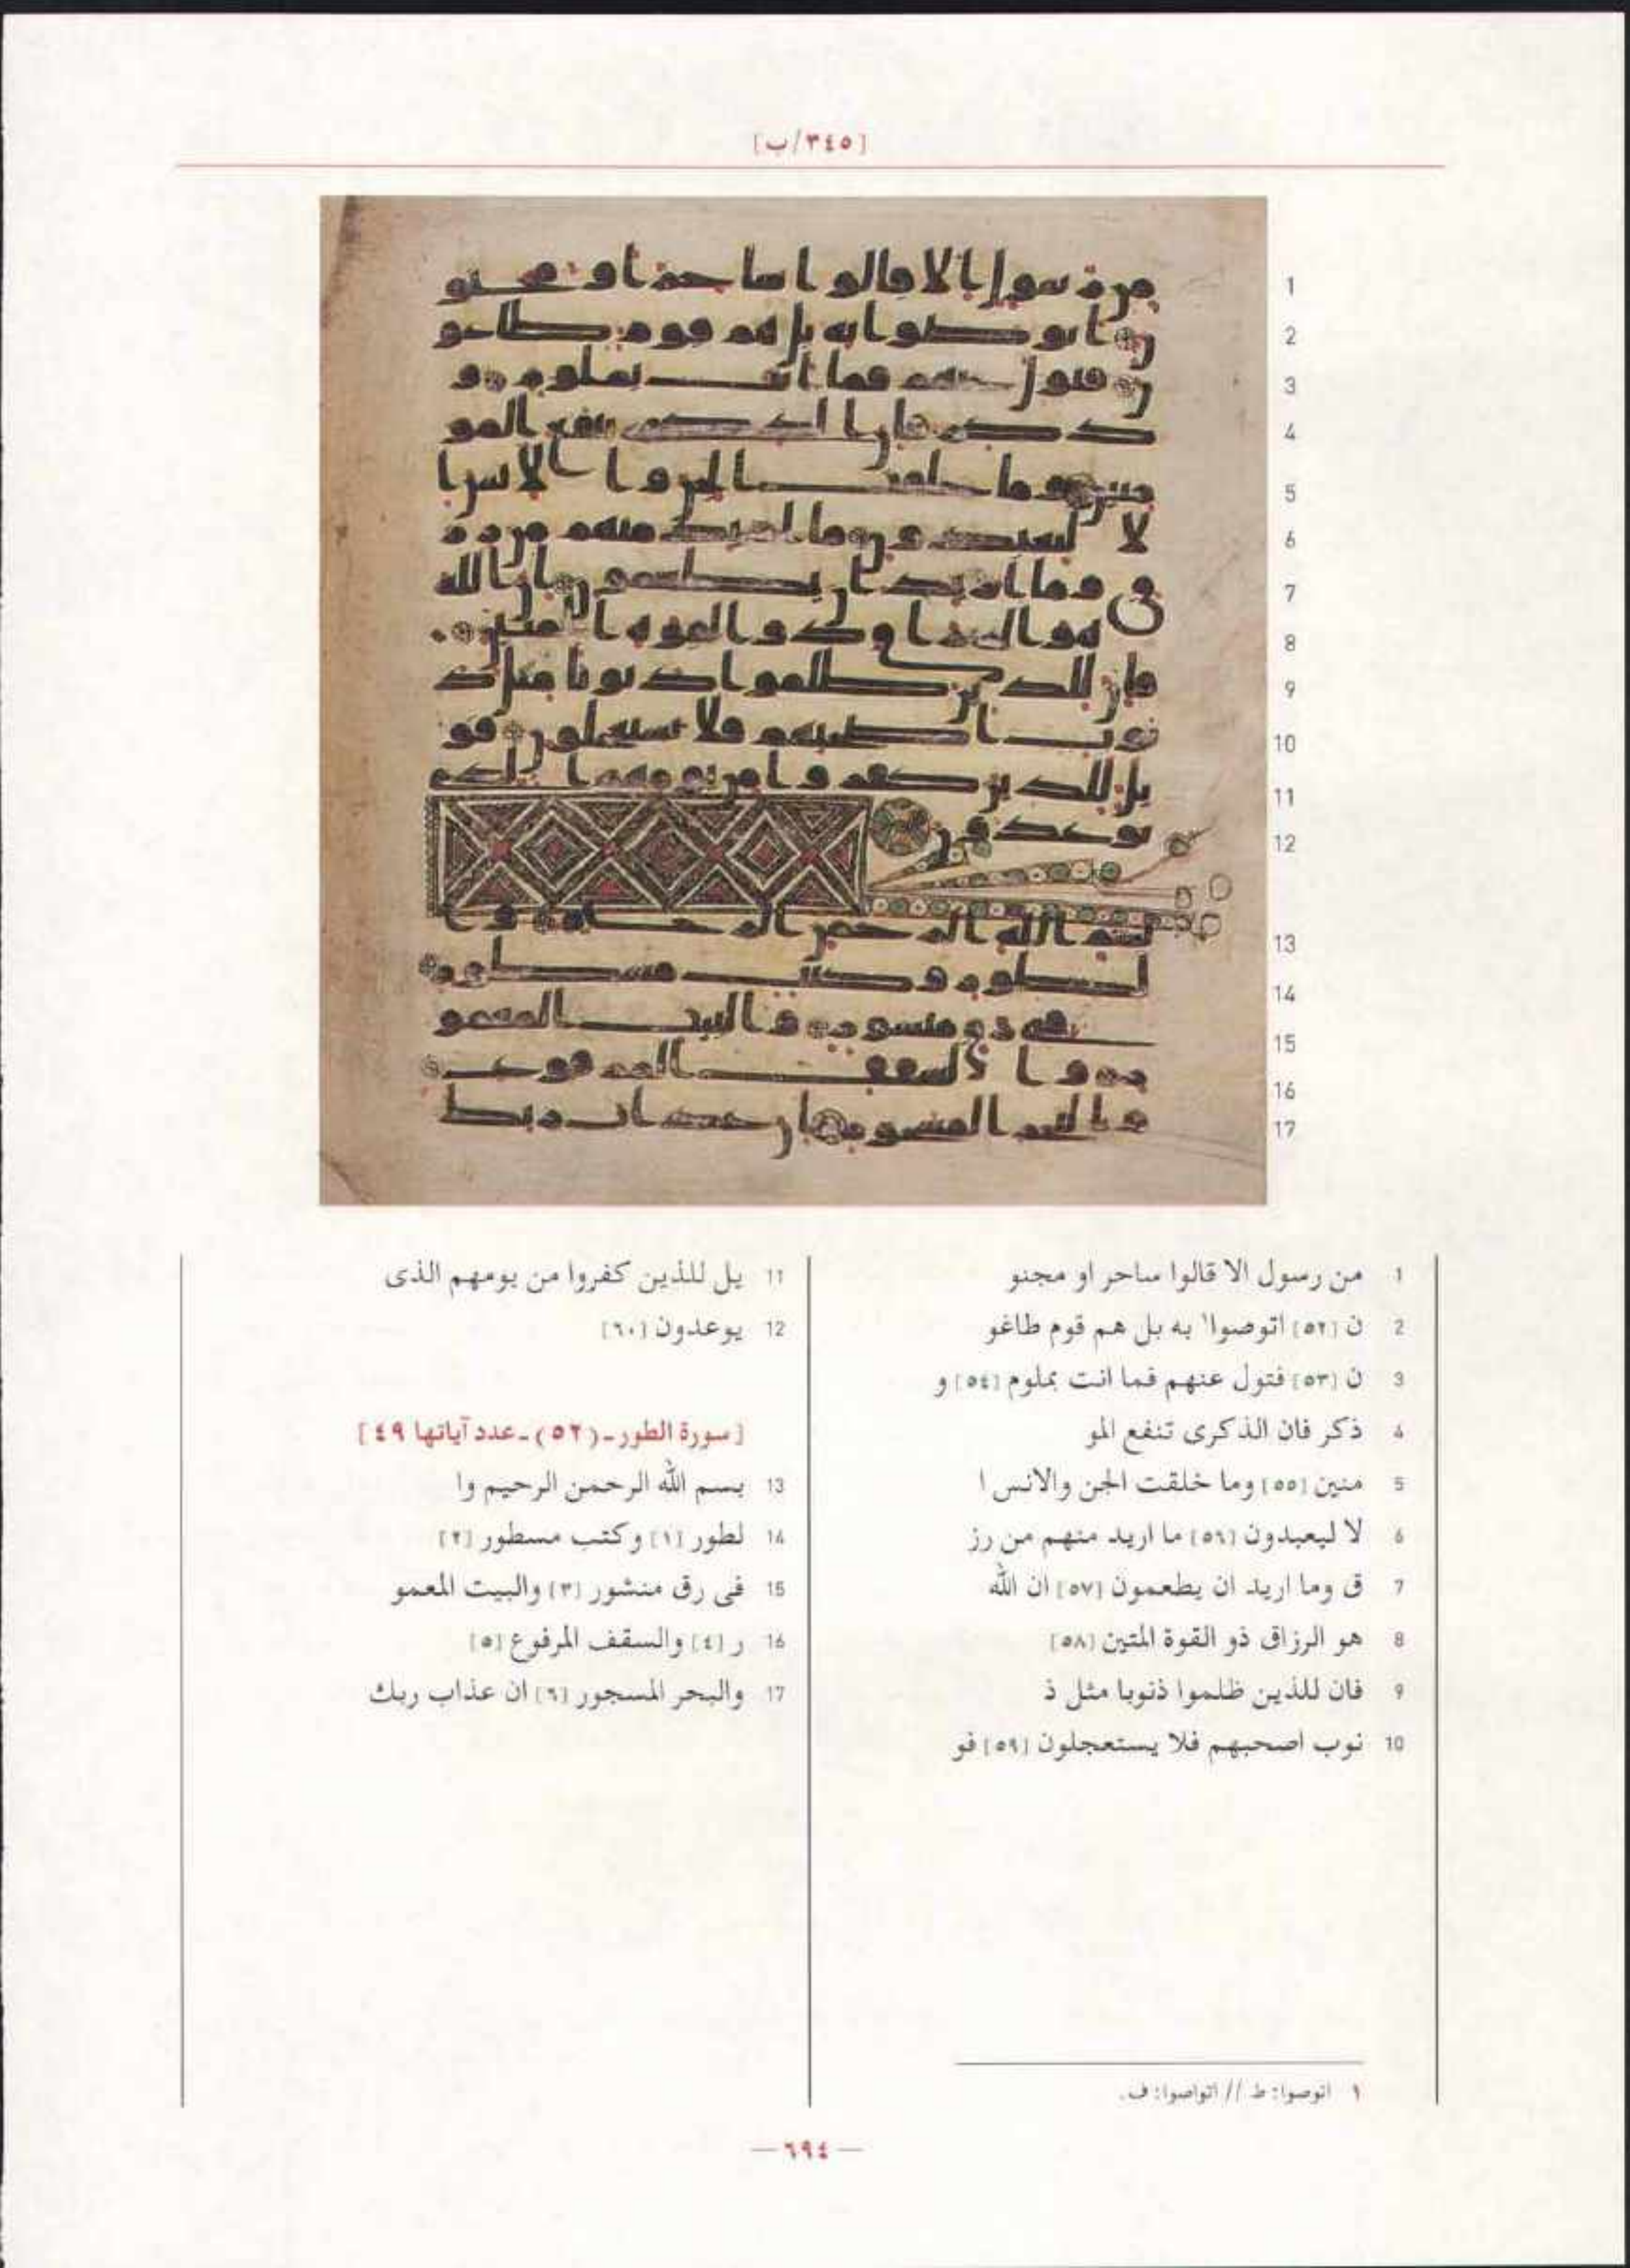 [٣٤٥/ب]
1 من رسول الا قالوا ساحر او مجنو
2 ن [٥٢] اتوصوا١ به بل هم قوم طاغو
3 ن [٥٣] فتول عنهم فما انت بملوم [٥٤] و
4 ذكر فان الذكرى تنفع المو
5 منين [٥٥] وما خلقت الجن والانس ا
6 لا ليعبدون [٥٦] ما اريد منهم من رز
7 ق وما اريد ان يطعمون [٥٧] ان الله
8 هو الرزاق ذو القوة المتين [٥٨]
9 فان للذين ظلموا ذنوبا مثل ذ
10 نوب اصحبهم فلا يستعجلون [٥٩] فو
11 يل للذين كفروا من يومهم الذى
12 يوعدون [٦٠]
[سورة الطور - (٥٢) - عدد آياتها ٤٩]
13 بسم الله الرحمن الرحيم وا
14 لطور [١] وكتب مسطور [٢]
15 فى رق منشور [٣] والبيت المعمو
16 ر [٤] والسقف المرفوع [٥]
17 والبحر المسجور [٦] ان عذاب ربك
١ اتوصوا: ط // اتواصوا: ف.
— ٦٩٤ —